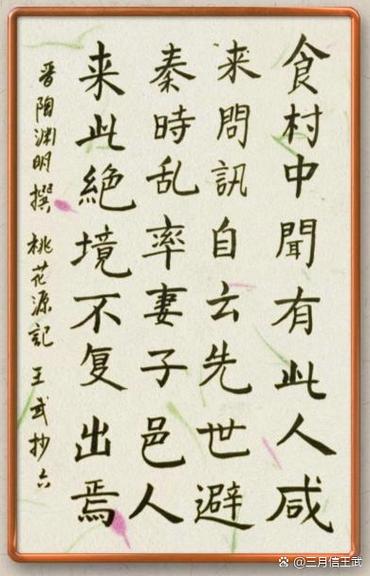 食村中聞有此人咸
来問訊自云先世避
秦時乱率妻子邑人
来此絶境不复出焉
晋陶渊明撰 桃花源記 王武抄六
@三月信王武